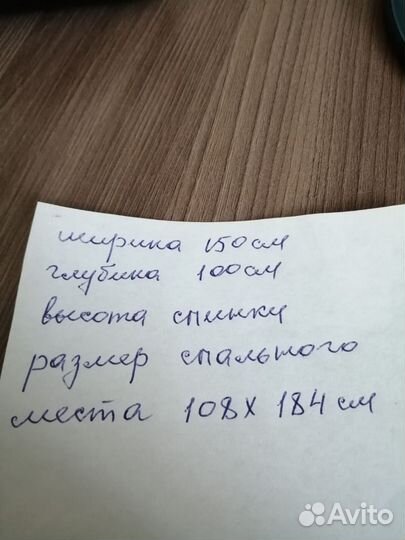 ширина 150см
глубина 100см
высота спинки
размер спального
места 108х 184см
Avito